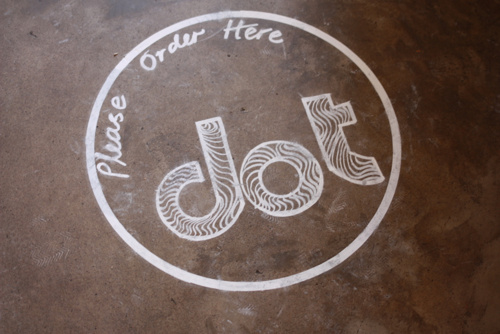 Please Order Here
dot